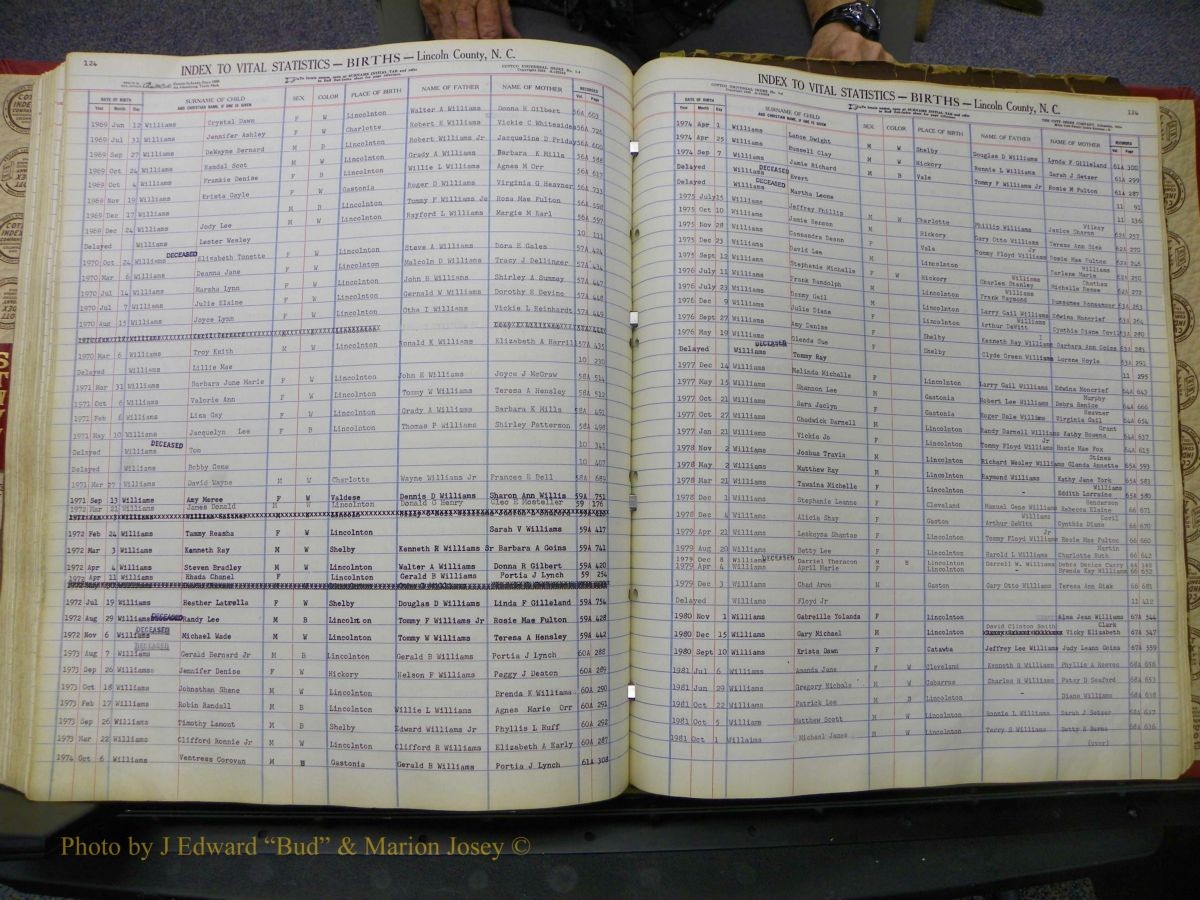 124
INDEX TO VITAL STATISTICS — BIRTHS — Lincoln County, N. C.
DATE OF BIRTH SURNAME OF CHILD AND CHRISTIAN NAME, IF ONE IS GIVEN SEX COLOR PLACE OF BIRTH NAME OF FATHER NAME OF MOTHER RECORDED
Year Month Day Vol. Page
1969 Jun 12 Williams Crystal Dawn F W Lincolnton Walter A Williams Donna R Gilbert 56A 603
1969 Jul 31 Williams Jennifer Ashley F W Charlotte Robert E Williams Vickie C Whitesides 56A 725
1969 Sep 27 Williams DeWayne Bernard M B Lincolnton Robert Williams Jr Jacqueline D Friday 56A 600
1969 Oct 24 Williams Randal Scot M W Lincolnton Grady A Williams Barbara K Mills 56A 588
1969 Oct 4 Williams Frankie Denise F B Lincolnton Willie L Williams Agnes M Orr 56A 617
1969 Nov 19 Williams Krista Gayle F W Gastonia Roger D Williams Virginia G Heavner 56A 733
1969 Dec 17 Williams M B Lincolnton Tommy F Williams Jr Rosa Mae Fulton 56A 598
1969 Dec 24 Williams Jody Lee M W Lincolnton Rayford L Williams Margie M Karl 56A 597
Delayed Williams Lester Wesley 10 111
1970 Oct 24 Williams DECEASED Elizabeth Tunette F W Lincolnton Steve A Williams Dora E Gales 57A 424
1970 Mar 6 Williams Deanna Jane F W Lincolnton Malcolm D Williams Tracy J Dellinger 57A 434
1970 Jul 14 Williams Marsha Lynn F W Lincolnton John H Williams Shirley A Summey 57A 447
1970 Jul 7 Williams Julie Elaine F W Lincolnton Gernald W Williams Dorothy E Devine 57A 448
1970 Aug 15 Williams Joyce Lynn F W Lincolnton Otha I Williams Vickie L Reinhardt 57A 449
1970 Mar 6 Williams Troy Keith M W Lincolnton Ronald K Williams Elizabeth A Harrill 57A 435
Delayed Williams Lillie Mae 10 230
1971 Mar 31 Williams Barbara June Marie F W Lincolnton John E Williams Joyce J McGraw 58A 514
1971 Oct 6 Williams Valorie Ann F W Lincolnton Tommy W Williams Teresa A Hensley 58A 512
1971 Feb 6 Williams Lisa Gay F W Lincolnton Grady A Williams Barbara K Mills 58A 491
1971 May 10 Williams Jacquelyn Lee F B Lincolnton Thomas P Williams Shirley Patterson 58A 498
Delayed Williams DECEASED Tom 10 341
Delayed Williams Bobby Gene 10 407
1971 Mar 27 Williams David Wayne M W Charlotte Wayne Williams Jr Frances E Dell 58A 689
1971 Sep 13 Williams Amy Moree F W Valdese Dennis D Williams Sharon Ann Willis 59A 751
1972 Mar 21 Williams James Donald M W Lincolnton Donald G Henry Cleo R Mosteller 59 176
1972 Feb 24 Williams Tammy Reasha F W Lincolnton Sarah V Williams 59A 417
1972 Mar 3 Williams Kenneth Ray M W Shelby Kenneth R Williams Sr Barbara A Goins 59A 741
1972 Apr 4 Williams Steven Bradley M W Lincolnton Walter A Williams Donna R Gilbert 59A 420
1972 Apr 11 Williams Rhada Chanel F Lincolnton Gerald B Williams Portia J Lynch 59 254
1972 Jul 19 Williams Heather Latrella F W Shelby Douglas D Williams Linda F Gilleland 59A 754
1972 Aug 29 Williams DECEASED Randy Lee M B Lincolnton Tommy F Williams Jr Rosie Mae Fulton 59A 428
1972 Nov 6 Williams DECEASED Michael Wade M W Lincolnton Tommy W Williams Teresa A Hensley 59A 442
DECEASED
1973 Aug 7 Williams Gerald Bernard Jr M B Lincolnton Gerald B Williams Portia J Lynch 60A 288
1973 Sep 26 Williams Jennifer Denise F W Hickory Nelson F Williams Peggy J Deaton 60A 289
1973 Oct 18 Williams Johnathan Shane M W Lincolnton Brenda K Williams 60A 290
1973 Feb 17 Williams Robin Randall M B Lincolnton Willie L Williams Agnes Marie Orr 60A 291
1973 Sep 26 Williams Timothy Lamont M B Shelby Edward Williams Jr Phyllis L Ruff 60A 292
1973 Mar 22 Williams Clifford Ronnie Jr M W Lincolnton Clifford R Williams Elizabeth A Early 60A 287
1974 Oct 6 Williams Ventress Corovan M B Gastonia Gerald B Williams Portia J Lynch 61A 308
INDEX TO VITAL STATISTICS — BIRTHS — Lincoln County, N. C.
124
DATE OF BIRTH SURNAME OF CHILD AND CHRISTIAN NAME, IF ONE IS GIVEN SEX COLOR PLACE OF BIRTH NAME OF FATHER NAME OF MOTHER RECORDED
Year Month Day Vol. Page
1974 Apr 1 Williams Lance Dwight M W Shelby Douglas D Williams Lynda F Gilleland 61A 300
1974 Apr 25 Williams Russell Clay M W Hickory Ronnie L Williams Sarah J Setzer 61A 299
1974 Sep 7 Williams Jamie Richard M B Vale Tommy F Williams Jr Rosie M Fulton 61A 287
Delayed Williams DECEASED Evert 11 91
Delayed Williams DECEASED Martha Leone 11 136
1975 July 15 Williams Jeffrey Phillip M W Charlotte Phillip Williams Janice Sharon Wilkey 62A 257
1975 Oct 10 Williams Jamie Benson Hickory Gary Otto Williams Teresa Ann Sisk 62A 270
1975 Nov 28 Williams Cassandra Deann Vale Tommy Floyd Williams Jr Rosie Mae Fulton 62A 245
1975 Dec 23 Williams David Lee M Lincolnton
1975 Sept 12 Williams Stephanie Michelle F W Hickory Charles Stanley Williams
1976 July 11 Williams Frank Randolph M Lincolnton Frank Raymond Williams
1976 July 23 Williams Donny Gail M Lincolnton Larry Gail Williams Edwina Moncrief
1976 Dec 9 Williams Julie Diane F Lincolnton Arthur DeWitt
1976 Sept 27 Williams Amy Denise F Shelby Kenneth Ray Williams Barbara Ann Goins
1976 May 19 Williams Glenda Sue F Shelby Clyde Green Williams Lorene Hoyle
Delayed Williams DECEASED Tommy Ray 11 295
1977 Dec 14 Williams Melinda Michelle F Lincolnton Larry Gail Williams Edwina Moncrief 64A 643
1977 May 15 Williams Shannon Lee Gastonia Robert Lee Williams Debra Renice Murphy 64A 666
1977 Oct 21 Williams Sara Jaclyn F Gastonia Roger Dale Williams Virginia Gail Heavner 64A 654
1977 Oct 27 Williams Chadwick Darnell M Lincolnton Randy Darnell Williams Kathy Rowena Grant 64A 637
1977 Jan 21 Williams Vickie Jo F Lincolnton Tommy Floyd Williams Jr Rosie Mae Fox 64A 615
1978 Nov 2 Williams Joshua Travis M Lincolnton Richard Wesley Williams Glenda Annette Stines 65A 593
1978 May 2 Williams Matthew Ray M Lincolnton Raymond Williams Kathy Jane York 65A 581
1978 Mar 21 Williams Tawaina Michelle F Lincolnton Eddith Lorraine Williams 65A 580
1978 Dec 1 Williams Stephanie Leanne F Cleveland Manual Gene Williams Rebecca Elaine Henderson 66 671
1978 Dec 4 Williams Alicia Shay F Gaston Arthur DeWitt Williams Cynthia Diane 66 670
1979 Apr 21 Williams Leskeysa Shantas F Lincolnton Tommy Floyd Williams Rosie Mae Fulton 66 660
1979 Aug 20 Williams Betty Lee F Lincolnton Harold L Williams Charlotte Ruth Martin 66 642
1979 Dec 8 Williams DECEASED Darriel Theracon M B Lincolnton Darrell W. Williams Debra Denice Curry 66 140
1979 Apr 4 Williams April Marie F Lincolnton - Brenda Kay Williams 66 652
1979 Dec 3 Williams Chad Aron M Gaston Gary Otto Williams Teresa Ann Sisk 66 681
Delayed Williams Floyd Jr 11 412
1980 Nov 1 Williams Gabreille Yolanda F Lincolnton Alma Jean Williams 67A 544
1980 Dec 15 Williams Gary Michael M Lincolnton David Clinton Smith Vicky Elizabeth Clark 67A 547
1980 Sept 10 Williams Krista Dawn F Catawba Jeffrey Lee Williams Judy Leann Goins 67A 559
1981 Jul 6 Williams Amanda Jane F W Cleveland Kenneth R Williams Phyllis A Reeves 68A 656
1981 Jun 29 Williams Gregory Nichols M W Cabarrus Charles H Williams Patsy D Seaford 68A 653
1981 Oct 22 Williams Patrick Lee M B Lincolnton - Diane Williams 68A 638
1981 Oct 5 William Matthew Scott M W Lincolnton Ronnie L Williams Sarah J Setzer 68A 637
1981 Oct 1 Willaims Michael James B W Lincolnton Terry S Williams Betty S Burns 68A 636
(over)
Photo by J Edward “Bud” & Marion Josey ©